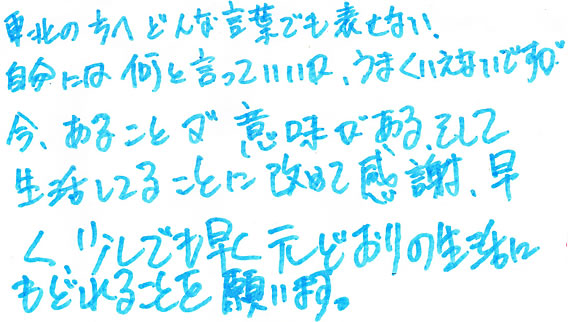 東北の方へどんな言葉でも表せない、
自分には何と言っていいか、うまくいえないですが
今、あることが意味がある、そして
生活してることに改めて感謝、早
く、少しでも早く元どおりの生活に
もどれることを願います。